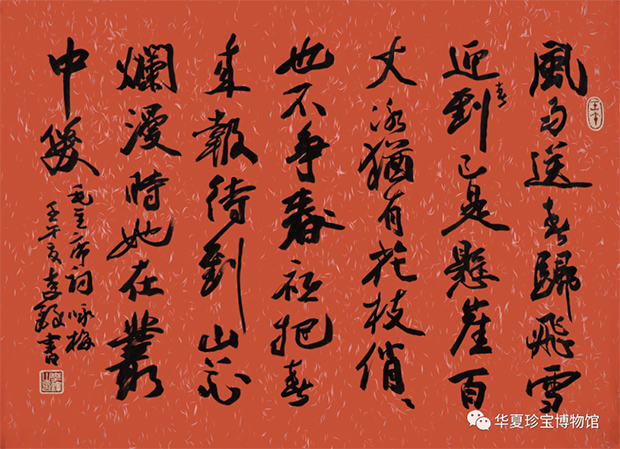 風雨送春歸飛雪
迎春到已是懸崖百
丈冰猶有花枝俏、
也不爭春祇把春
来報待到山花
爛漫時她在叢
中笑
毛主席詞詠梅
壬午 書
华夏珍宝博物馆